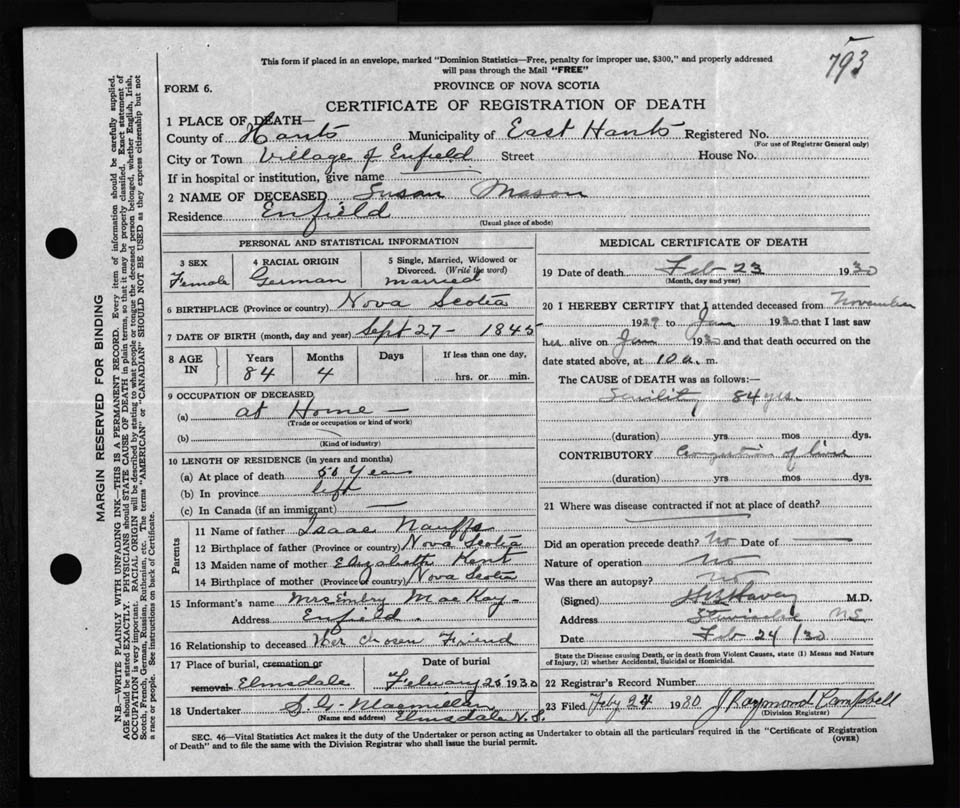 793
This form if placed in an envelope, marked "Dominion Statistics—Free, penalty for improper use, $300," and properly addressed
will pass through the Mail "FREE"
FORM 6.
PROVINCE OF NOVA SCOTIA
CERTIFICATE OF REGISTRATION OF DEATH
1 PLACE OF DEATH—
County of Hants Municipality of East Hants Registered No.
(For use of Registrar General only)
City or Town Village of Enfield Street House No.
If in hospital or institution, give name
2 NAME OF DECEASED Susan Mason
Residence Enfield
(Usual place of abode)
PERSONAL AND STATISTICAL INFORMATION
3 SEX
Female
4 RACIAL ORIGIN
German
5 Single, Married, Widowed or
Divorced. (Write the word)
married
6 BIRTHPLACE (Province or country) Nova Scotia
7 DATE OF BIRTH (month, day and year) Sept 27 - 1845
8 AGE
IN
Years
84
Months
4
Days
If less than one day,
hrs. or min.
9 OCCUPATION OF DECEASED
(a) at Home —
(Trade or occupation or kind of work)
(b)
(Kind of industry)
10 LENGTH OF RESIDENCE (in years and months)
(a) At place of death 50 Years
(b) In province life
(c) In Canada (if an immigrant) —
Parents
11 Name of father Isaac
12 Birthplace of father (Province or country) Nova Scotia
13 Maiden name of mother Elizabeth Kent
14 Birthplace of mother (Province of country) Nova Scotia
15 Informant's name Mrs Embry MacKay
Address Enfield
16 Relationship to deceased Her Chosen Friend
17 Place of burial, cremation or
removal Elmsdale
Date of burial
Febuary 25 1930
18 Undertaker S. G. Macmillan
(Name and address) Elmsdale N.S.
MEDICAL CERTIFICATE OF DEATH
19 Date of death Feb 23 1930
(Month, day and year)
20 I HEREBY CERTIFY that I attended deceased from November
1929 to Jan 1930 that I last saw
her alive on Jan 1930 and that death occurred on the
date stated above, at 10 a. m.
The CAUSE of DEATH was as follows:—
Senility 84 yrs.
(duration) yrs mos dys.
CONTRIBUTORY Congestion of liver
(duration) yrs. mos. dys.
21 Where was disease contracted if not at place of death?
Did an operation precede death? No Date of —
Nature of operation No
Was there an autopsy? no
(Signed) M.D.
Address N.S.
Date Feb 24/30
State the Disease causing Death, or in death from Violent Causes, state (1) Means and Nature
of Injury, (2) whether Accidental, Suicidal or Homicidal.
22 Registrar's Record Number
23 Filed Feby 24 1930 J Raymond Campbell
(Division Registrar)
SEC. 46—Vital Statistics Act makes it the duty of the Undertaker or person acting as Undertaker to obtain all the particulars required in the "Certificate of Registration
of Death" and to file the same with the Division Registrar who shall issue the burial permit.
(OVER)
MARGIN RESERVED FOR BINDING
N.B.—WRITE PLAINLY WITH UNFADING INK—THIS IS A PERMANENT RECORD. Every item of information should be carefully supplied.
AGE should be stated EXACTLY. PHYSICIANS should STATE CAUSE OF DEATH in plain terms, so that it may be properly classified. Exact statement of
OCCUPATION is very important. RACIAL ORIGIN will be described by stating to what people or tongue the deceased person belonged, whether English, Irish,
Scotch, French, German, Russian, Ruthenian, etc. The terms "AMERICAN" or "CANADIAN" SHOULD NOT BE USED as they express citizenship but not
a race or people. See instructions on back of Certificate.